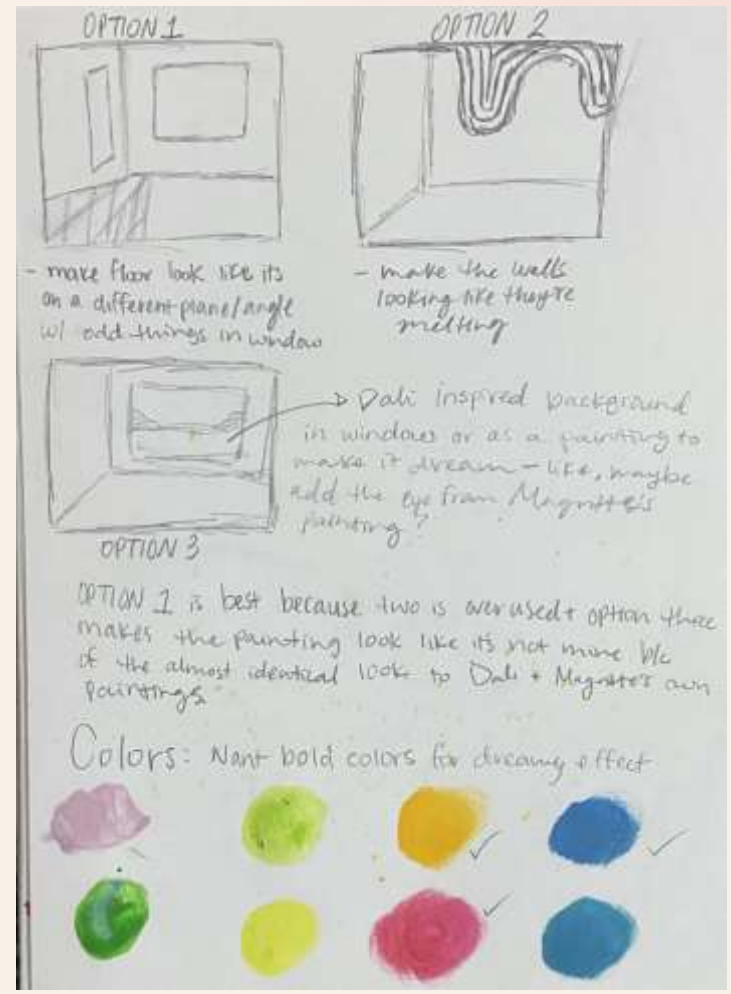 OPTION 1
OPTION 2
- make floor look like its
on a different plane/angle
w/ odd things in window
- make the walls
looking like they're
melting
Dali inspired background
in windows or as a painting to
make it dream-like, maybe
add the eye from Magritte's
painting?
OPTION 3
OPTION 1 is best because two is overused + option three
makes the painting look like its not mine b/c
of the almost identical look to Dali + Magritte's own
paintings
Colors: Want bold colors for dreamy effect